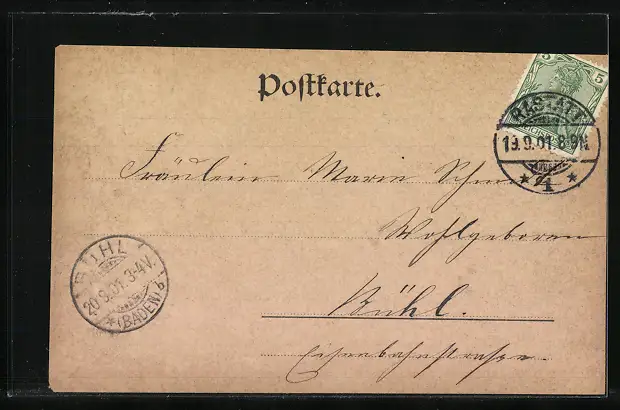 Postkarte.
5 5
RASTATT
19.9.01.8-9N
* 1 *
Fräulein Marie
Wohlgeboren
Bühl.
Eisenbahnstrasse.
BÜHL
20.9.01.3-4V.
* (BADEN)